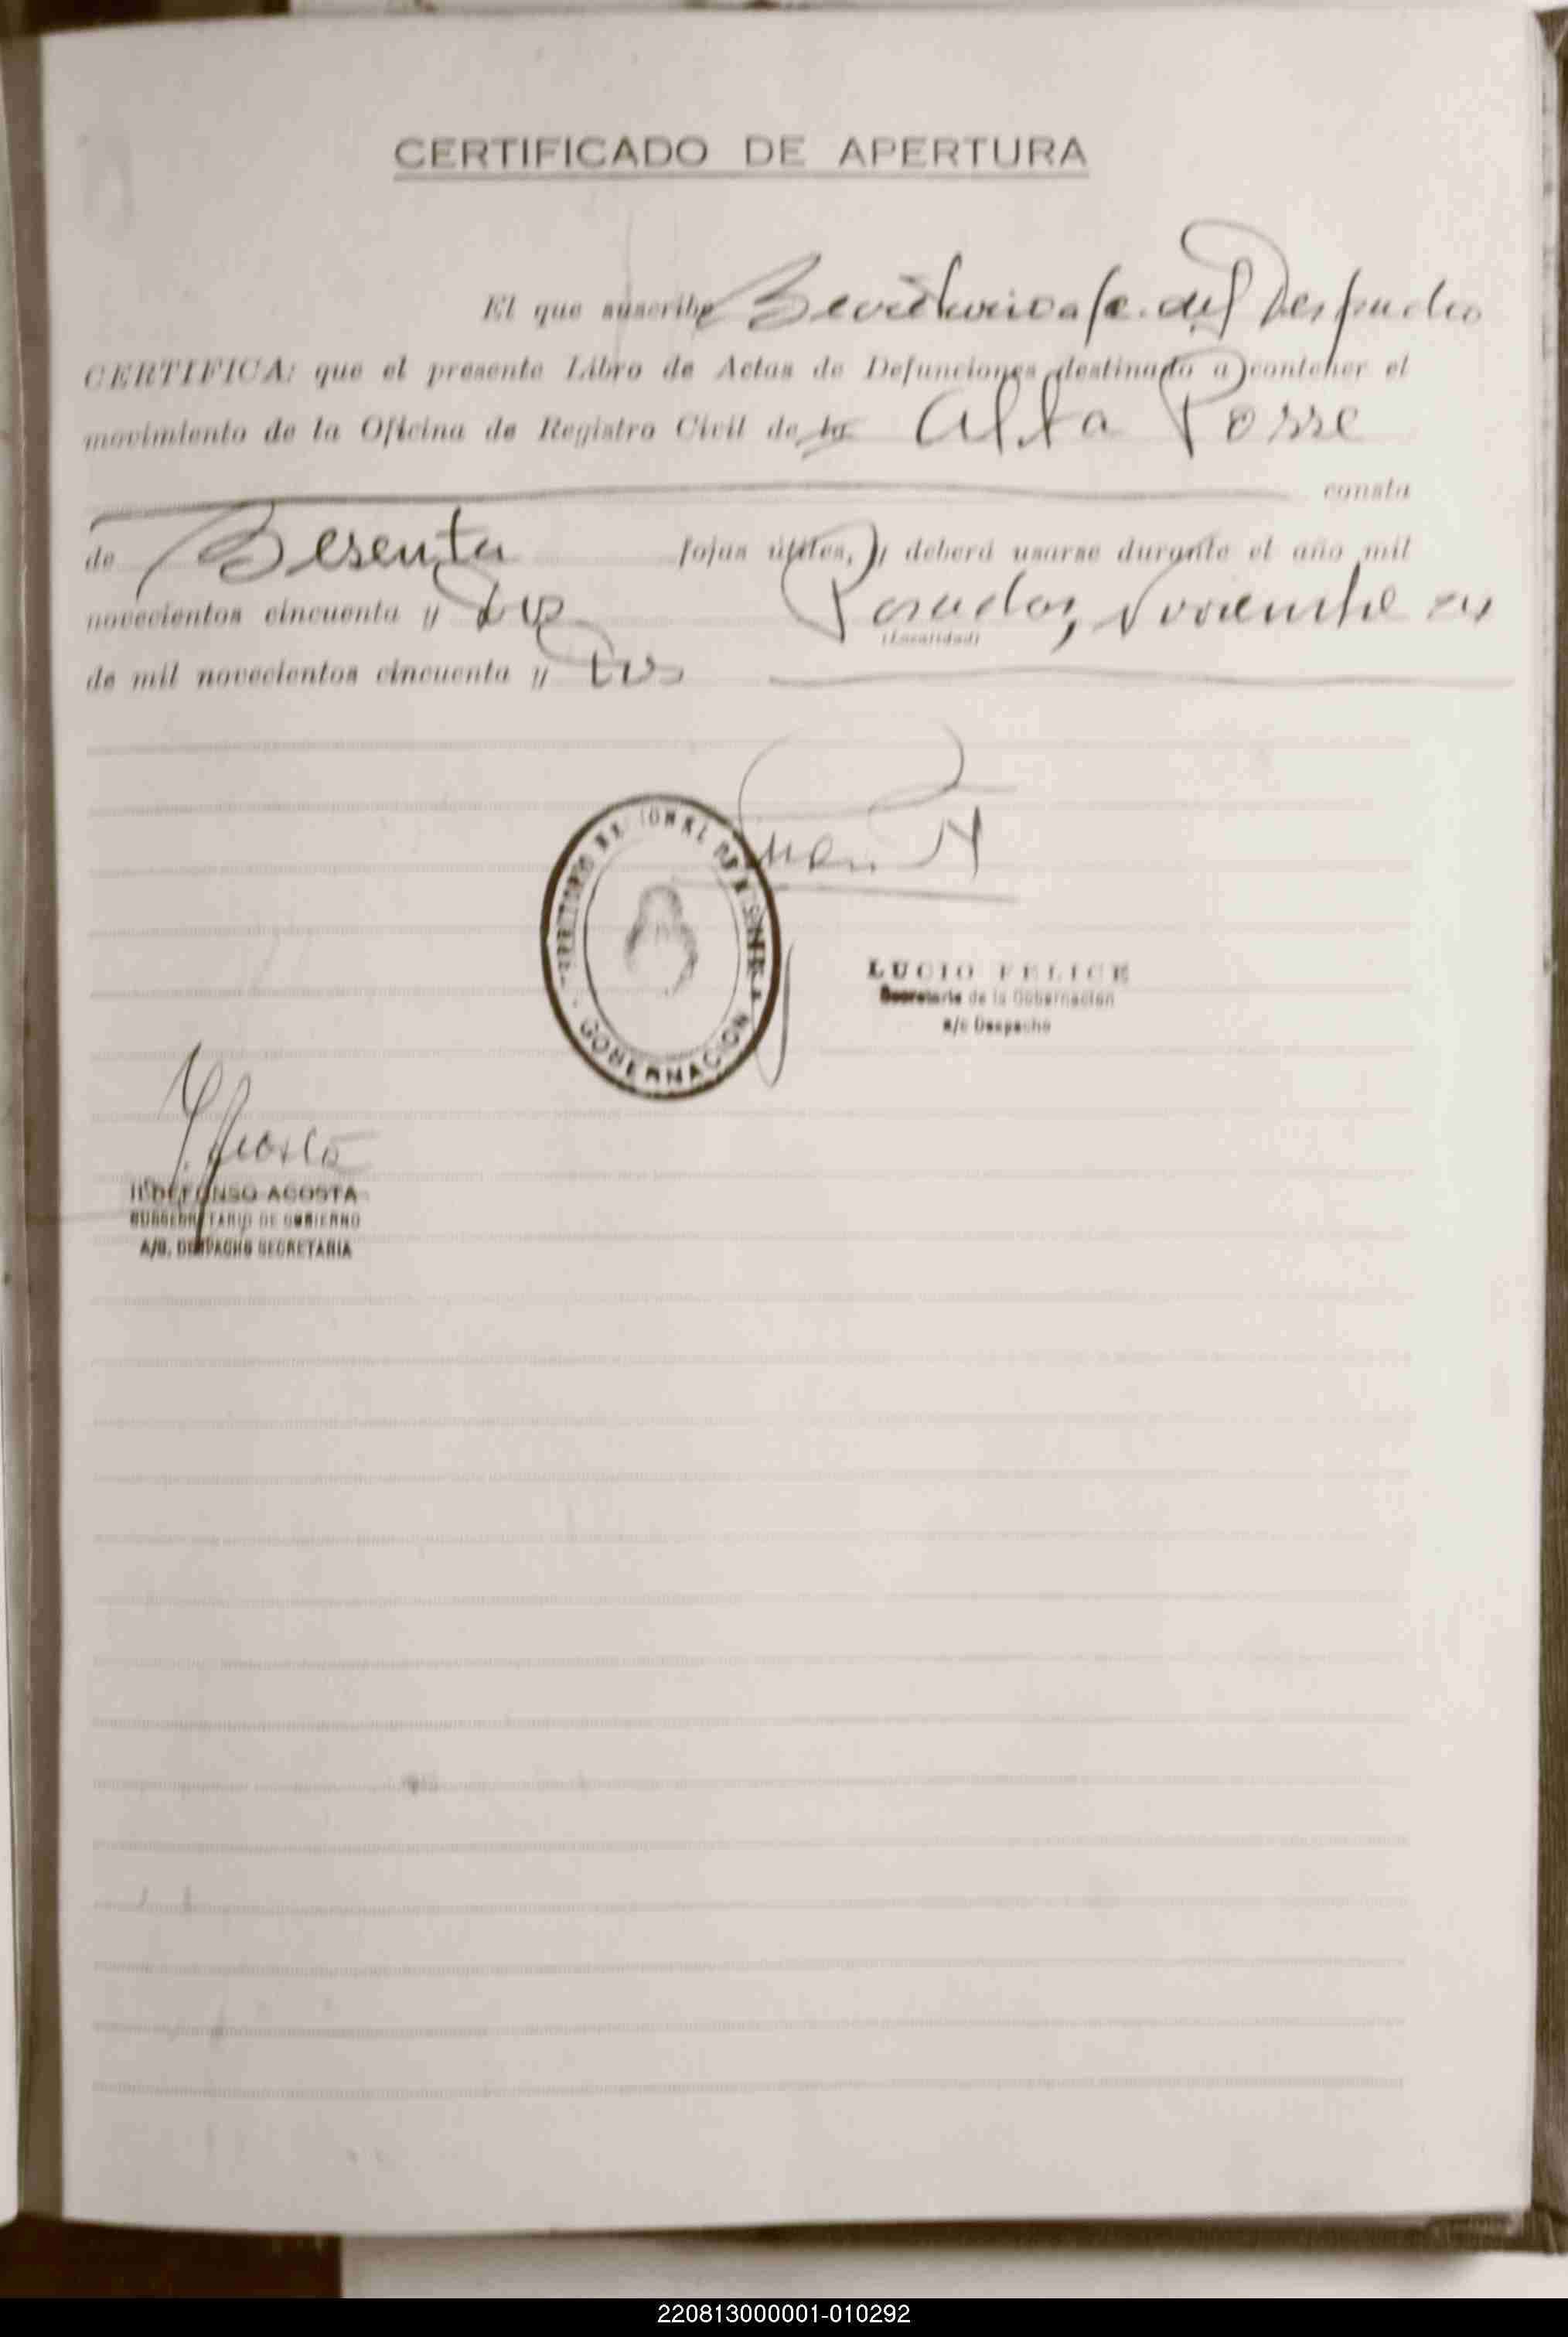 CERTIFICADO DE APERTURA
El que suscribe Secretario a/c. del Despacho
CERTIFICA: que el presente Libro de Actas de Defunciones destinado a contener el
movimiento de la Oficina de Registro Civil de la Alta Torre
consta
de Sesenta fojas útiles, y deberá usarse durante el año mil
novecientos cincuenta y Posadas, Noviembre 24
(Localidad)
de mil novecientos cincuenta y
TERRITORIO NACIONAL DE MISIONES
GOBERNACION
LUCIO FELICE
Secretario de la Gobernación
a/c Despacho
ILDEFONSO ACOSTA
SUBSECRETARIO DE GOBIERNO
A/C. DESPACHO SECRETARIA
220813000001-010292